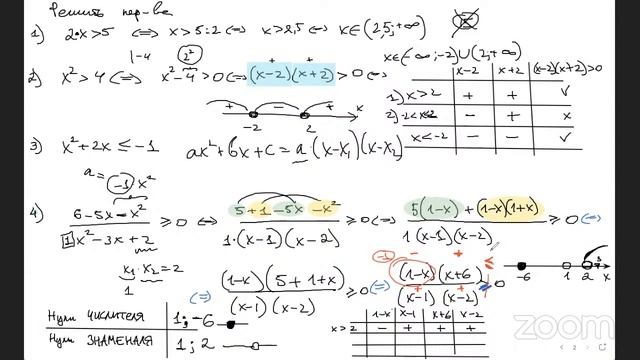 Решить нер-ва
1) 2·x>5 ⟺ x>5:2 ⟺ x>2,5 ⟺ x∈(2,5;+∞)
x∈(-∞;-2)∪(2;+∞)
|-4 2²
2) x²>4 ⟺ x²-4>0 ⟺ (x-2)(x+2)>0 ⟺
+ +
x-2 x+2 (x-2)(x+2)>0
1) x>2 + + v
2) -2<x<2 - + x
x<-2 - - v
+ - + x
-2 2
3) x²+2x≤-1 ax²+bx+c=a·(x-x₁)(x-x₂)
a=-1 x²
4) (6-5x-x²)/(1x²-3x+2) ≥0 ⟺ (5+1-5x-x²)/(1·(x-1)(x-2)) ≥0 ⟺ (5(1-x)+(1-x)(1+x))/(1(x-1)(x-2)) ≥0 ⟺
x₁·x₂=2
1
⟺ ((1-x)(5+1+x))/((x-1)(x-2)) ≥0 ⟺ ((1-x)(x+6))/((x-1)(x-2)) 0
-6 1 2 x
Нули ЧИСЛИТЕЛЯ 1;-6
Нули ЗНАМЕНАЛЯ 1;2
1-x x-1 x+6 x-2
x>2 - + + +
zoom